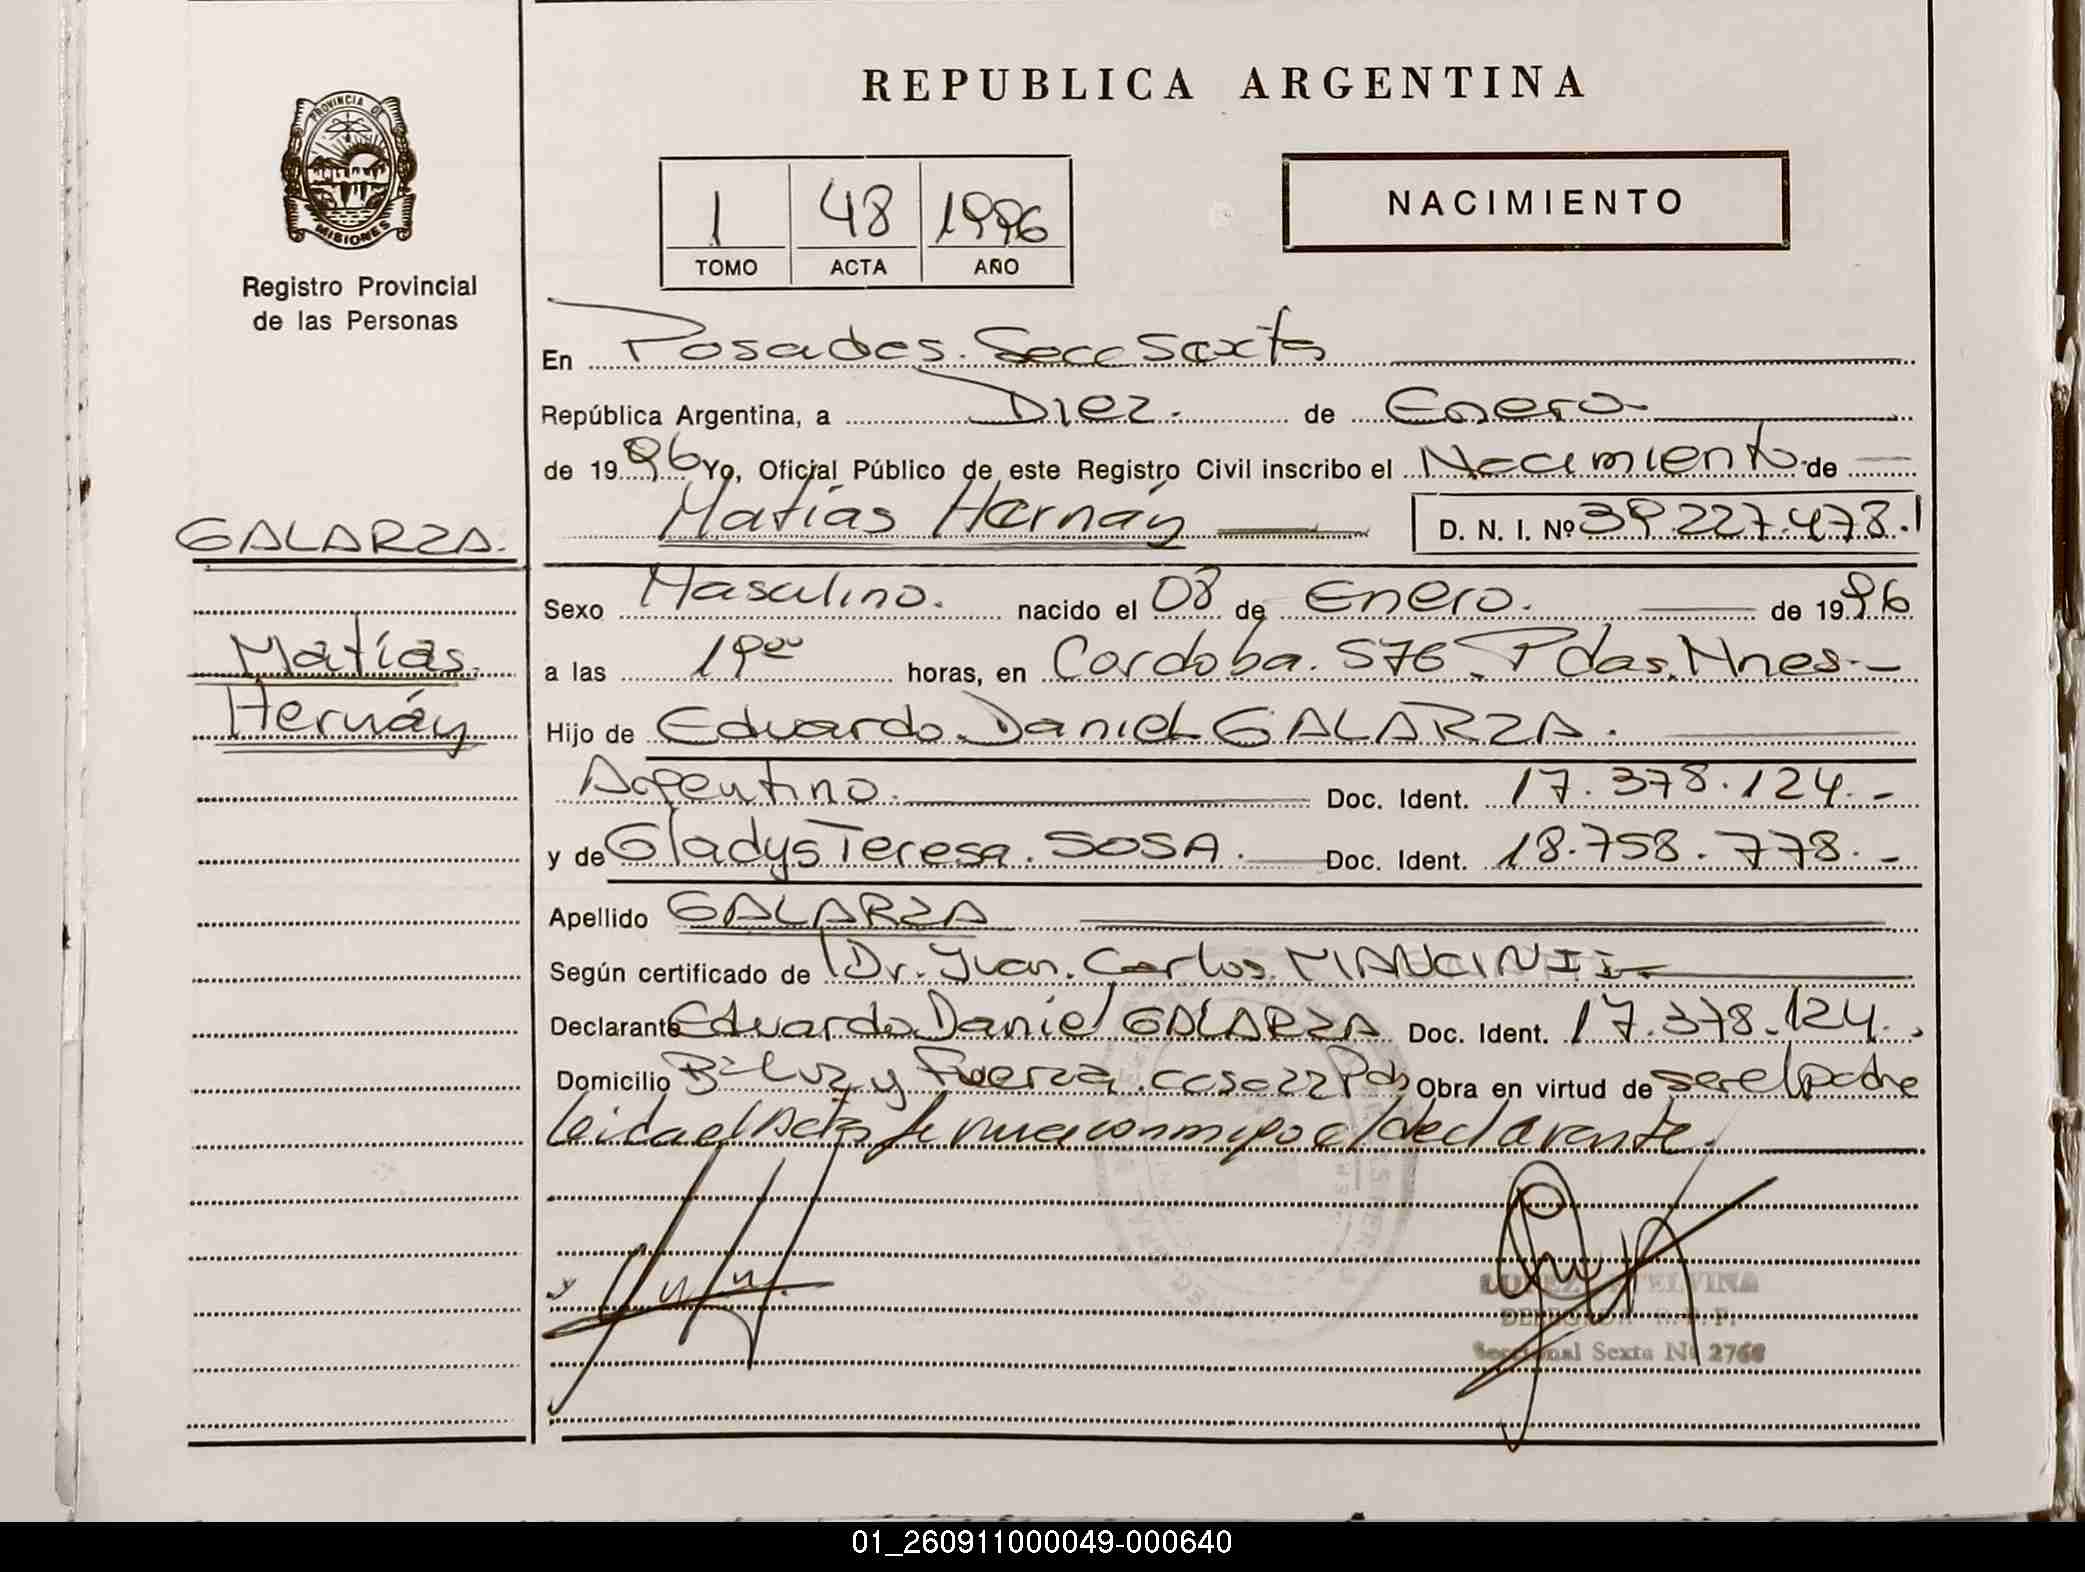 REPUBLICA ARGENTINA
PROVINCIA DE
MISIONES
Registro Provincial
de las Personas
1 48 1996
TOMO ACTA AÑO
NACIMIENTO
En Posadas. Secc Sexta
República Argentina, a Diez. de Enero.
de 1996 Yo, Oficial Público de este Registro Civil inscribo el Nacimiento de
Matías Hernán D. N. I. Nº 39.227.478.
GALARZA.
Matías
Hernán
Sexo Masculino. nacido el 08 de Enero. de 1996
a las 19ºº horas, en Cordoba. 576. Pdas. Mnes.-
Hijo de Eduardo Daniel GALARZA.
Argentino. Doc. Ident. 17.378.124.-
y de Gladys Teresa. SOSA. Doc. Ident. 18.758.778.-
Apellido GALARZA
Según certificado de Dr. Juan. Carlos. MIANCINI
Declarante Eduardo Daniel GALARZA Doc. Ident. 17.378.124.
Domicilio Bº Luz y Fuerza. casa 22 Pdas Obra en virtud de ser el padre
Leida el Acta firma conmigo el declarante.
ETELVINA
DELEGADA R. P. P.
Seccional Sexta Nº 2768
01_260911000049-000640